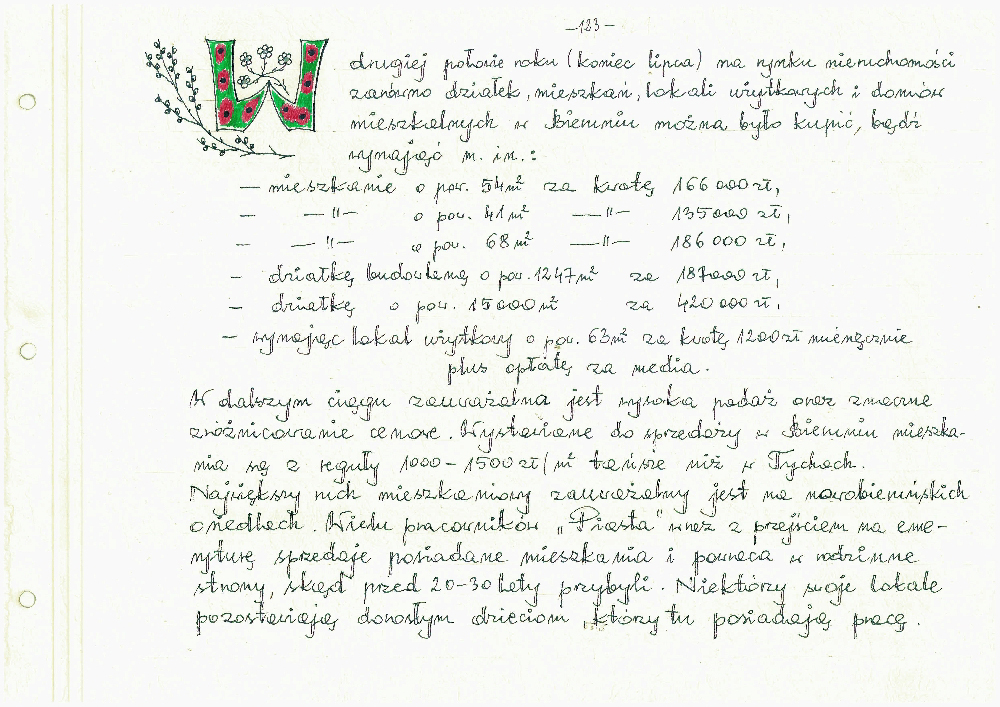 —123—
W drugiej połowie roku (koniec lipca) na rynku nieruchomości
zarówno działek, mieszkań, lokali użytkowych i domów
mieszkalnych w Bieruniu można było kupić, bądź
wynająć m. in.:
— mieszkanie o pow. 54 m² za kwotę 166 000 zł,
— —"— o pow. 41 m² —"— 135 000 zł,
— —"— o pow. 68 m² —"— 186 000 zł,
— działkę budowlaną o pow. 1247 m² za 187 000 zł,
— działkę o pow. 15 000 m² za 420 000 zł,
— wynając lokal użytkowy o pow. 63 m² za kwotę 1200 zł miesięcznie
plus opłatę za media.
W dalszym ciągu zauważalna jest wysoka podaż oraz znaczne
zróżnicowanie cenowe. Wystawiane do sprzedaży w Bieruniu mieszka-
nia są z reguły 1000 – 1500 zł/m² tańsze niż w Tychach.
Największy ruch mieszkaniowy zauważalny jest na nowobieruńskich
osiedlach. Wielu pracowników „Piasta" wraz z przejściem na eme-
ryturę sprzedaje posiadane mieszkania i powraca w rodzinne
strony, skąd przed 20-30 laty przybyli. Niektórzy swoje lokale
pozostawiają dorosłym dzieciom, którzy tu posiadają pracę.